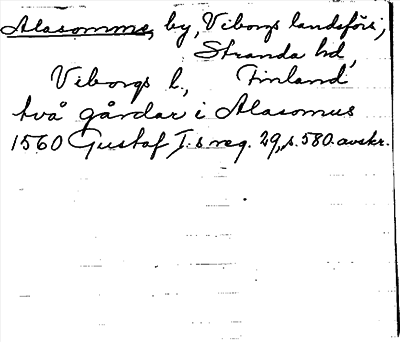 Alasomme, by, Viborgs landsförs;
Stranda hd,
Viborgs l., Finland
två gårdar i Alasomus
1560 Gustaf I.s reg. 29, s. 580. avskr.